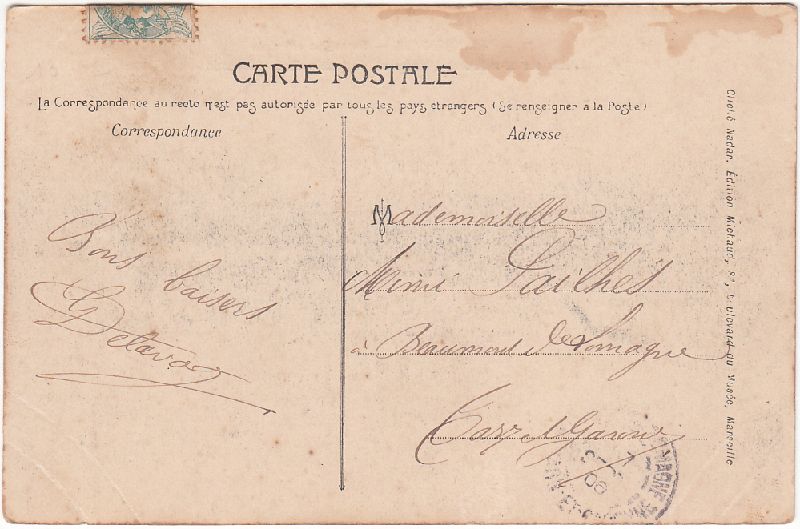 CARTE POSTALE
La Correspondance au recto n'est pas autorisée par tous les pays étrangers (Se renseigner à la Poste)
Correspondance
Bons baisers
Adresse
Mademoiselle
Mimi Gailhès
à Beaumont de Lomagne
Tarn et Garonne
Cliché Nadar. Édition Michaud, boulevard du Musée, Marseille